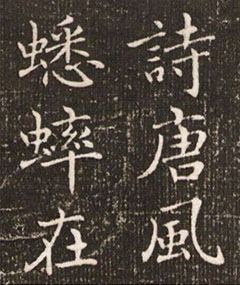 詩唐風
蟋蟀在